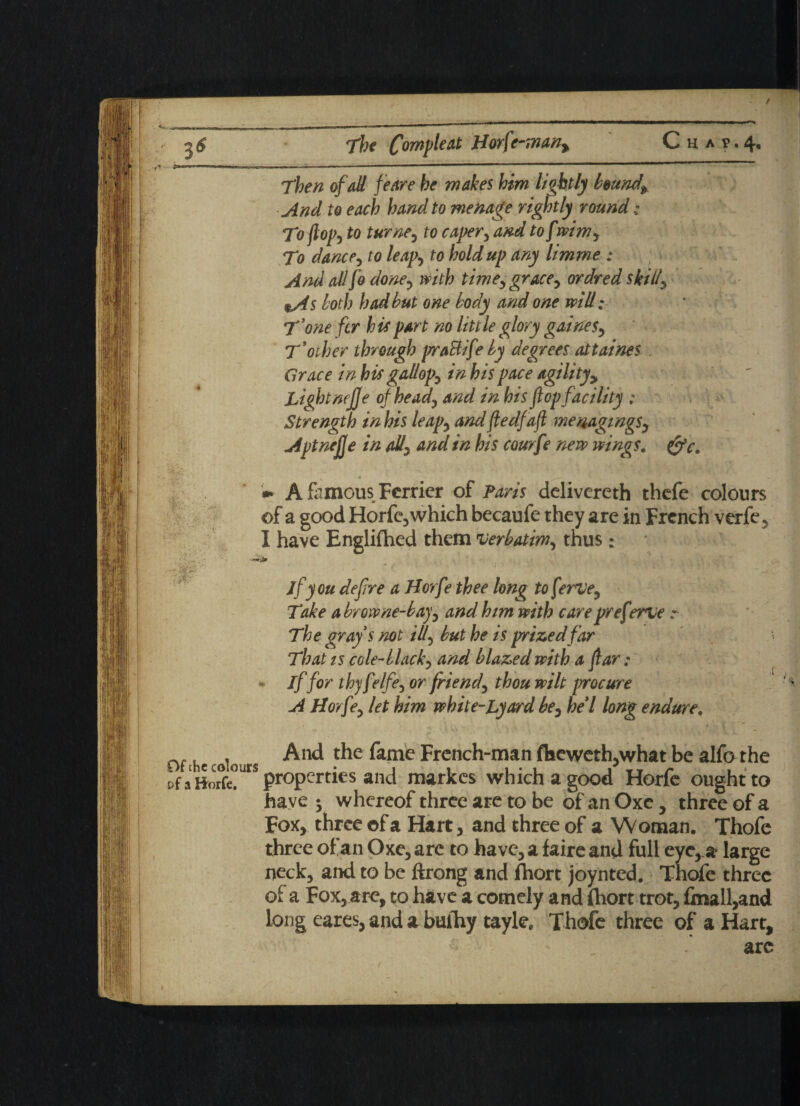 36 The Compleat Horſe-man, CHAP. 4.
Then of all feare he makes him lightly bound,
And to each hand to menage rightly round:
To ſtop, to turne, to caper, and to ſwim,
To dance, to leap, to hold up any limme:
And all ſo done, with time, grace, ordred skill,
As both had but one body and one will:
T'one for his part no little glory gaines,
T'other through practiſe by degrees attaines
Grace in his gallop, in his pace agility,
Lightneſſe of head, and in his ſtop facility:
Strength in his leap, and ſtedfaſt menagings,
Aptneſſe in all, and in his courſe new wings. &c.
A famous Ferrier of Paris delivereth theſe colours
of a good Horſe, which becauſe they are in French verſe,
I have Engliſhed them verbatim, thus:
If you deſire a Horſe thee long to ſerve,
Take a browne-bay, and him with care preſerve:
The gray's not ill, but he is prized far
That is cole-black, and blazed with a ſtar:
If for thy ſelfe, or friend, thou wilt procure
A Horſe, let him white-Lyard be, he'l long endure.
Of the colours
of a Horſe.
And the ſame French-man ſheweth, what be alſo the
properties and markes which a good Horſe ought to
have; whereof three are to be of an Oxe, three of a
Fox, three of a Hart, and three of a Woman. Thoſe
three of an Oxe, are to have, a faire and full eye, a large
neck, and to be ſtrong and ſhort joynted. Thoſe three
of a Fox, are, to have a comely and ſhort trot, ſmall, and
long eares, and a buſhy tayle. Thoſe three of a Hart,
are